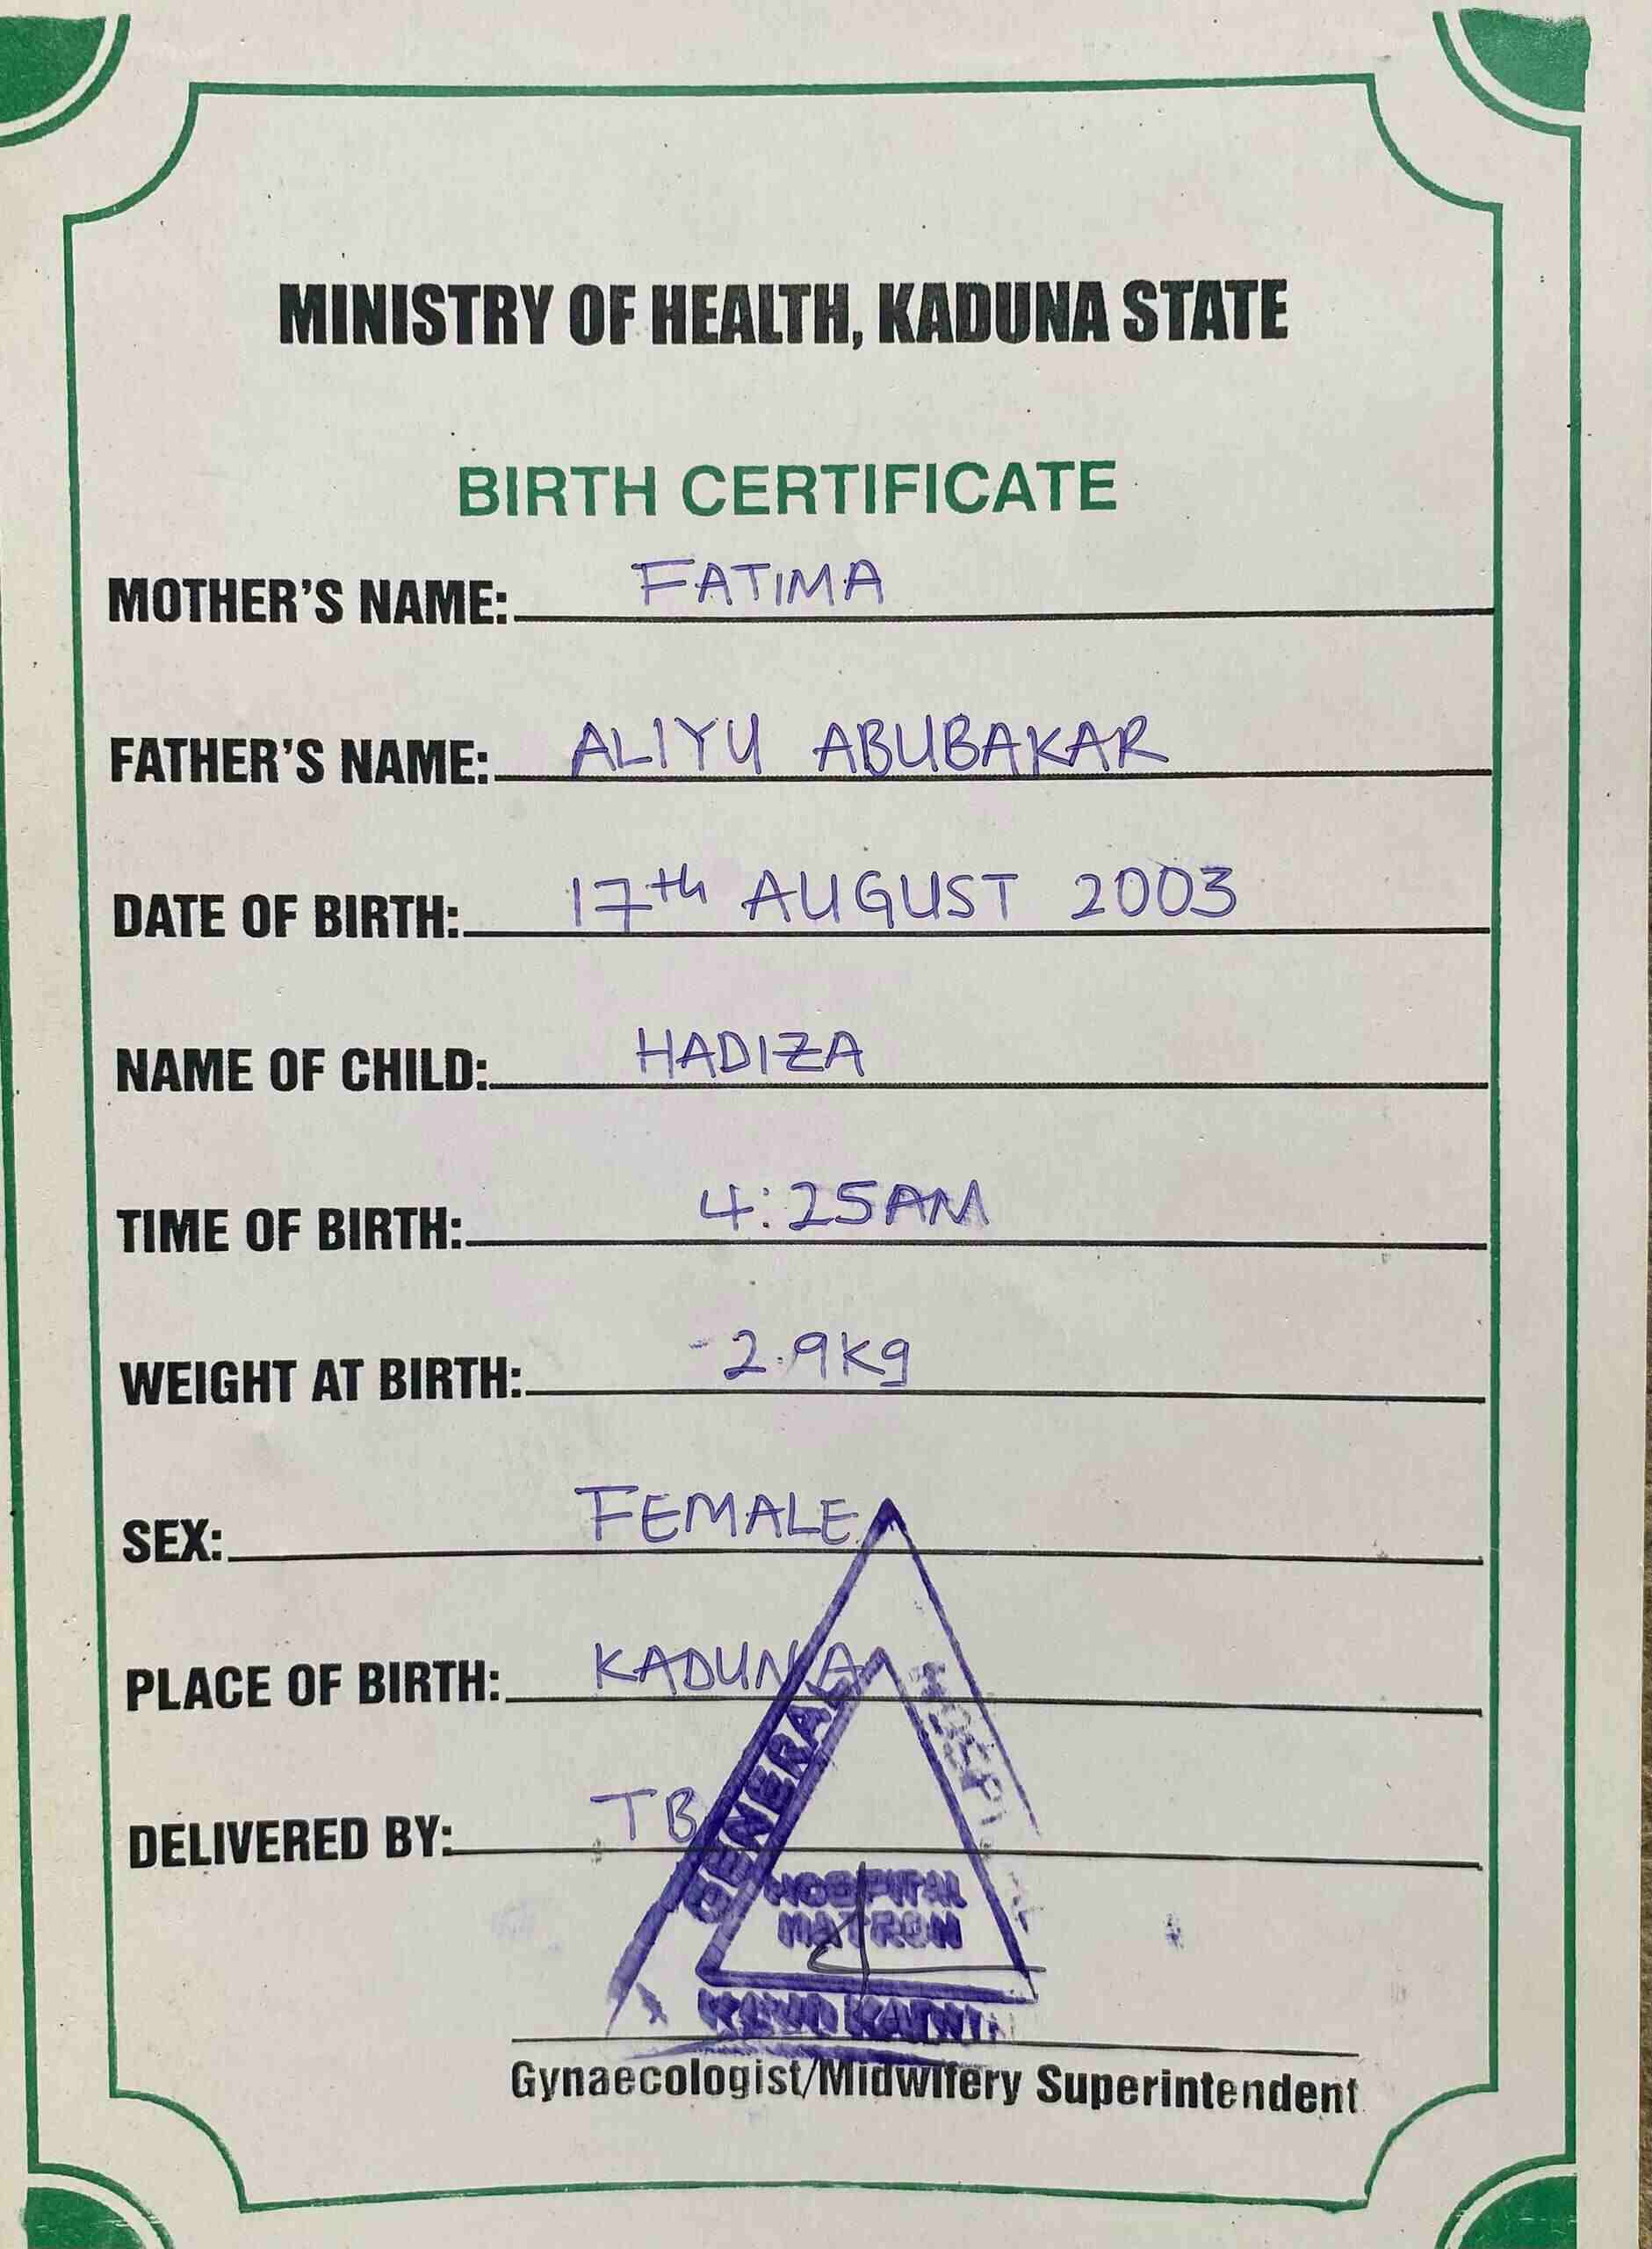 MINISTRY OF HEALTH, KADUNA STATE
BIRTH CERTIFICATE
MOTHER'S NAME: FATIMA
FATHER'S NAME: ALIYU ABUBAKAR
DATE OF BIRTH: 17th AUGUST 2003
NAME OF CHILD: HADIZA
TIME OF BIRTH: 4:25AM
WEIGHT AT BIRTH: 2.9kg
SEX: FEMALE
PLACE OF BIRTH: KADUNA
DELIVERED BY: TB
GENERAL
HOSPITAL
MATRON
Gynaecologist/Midwifery Superintendent